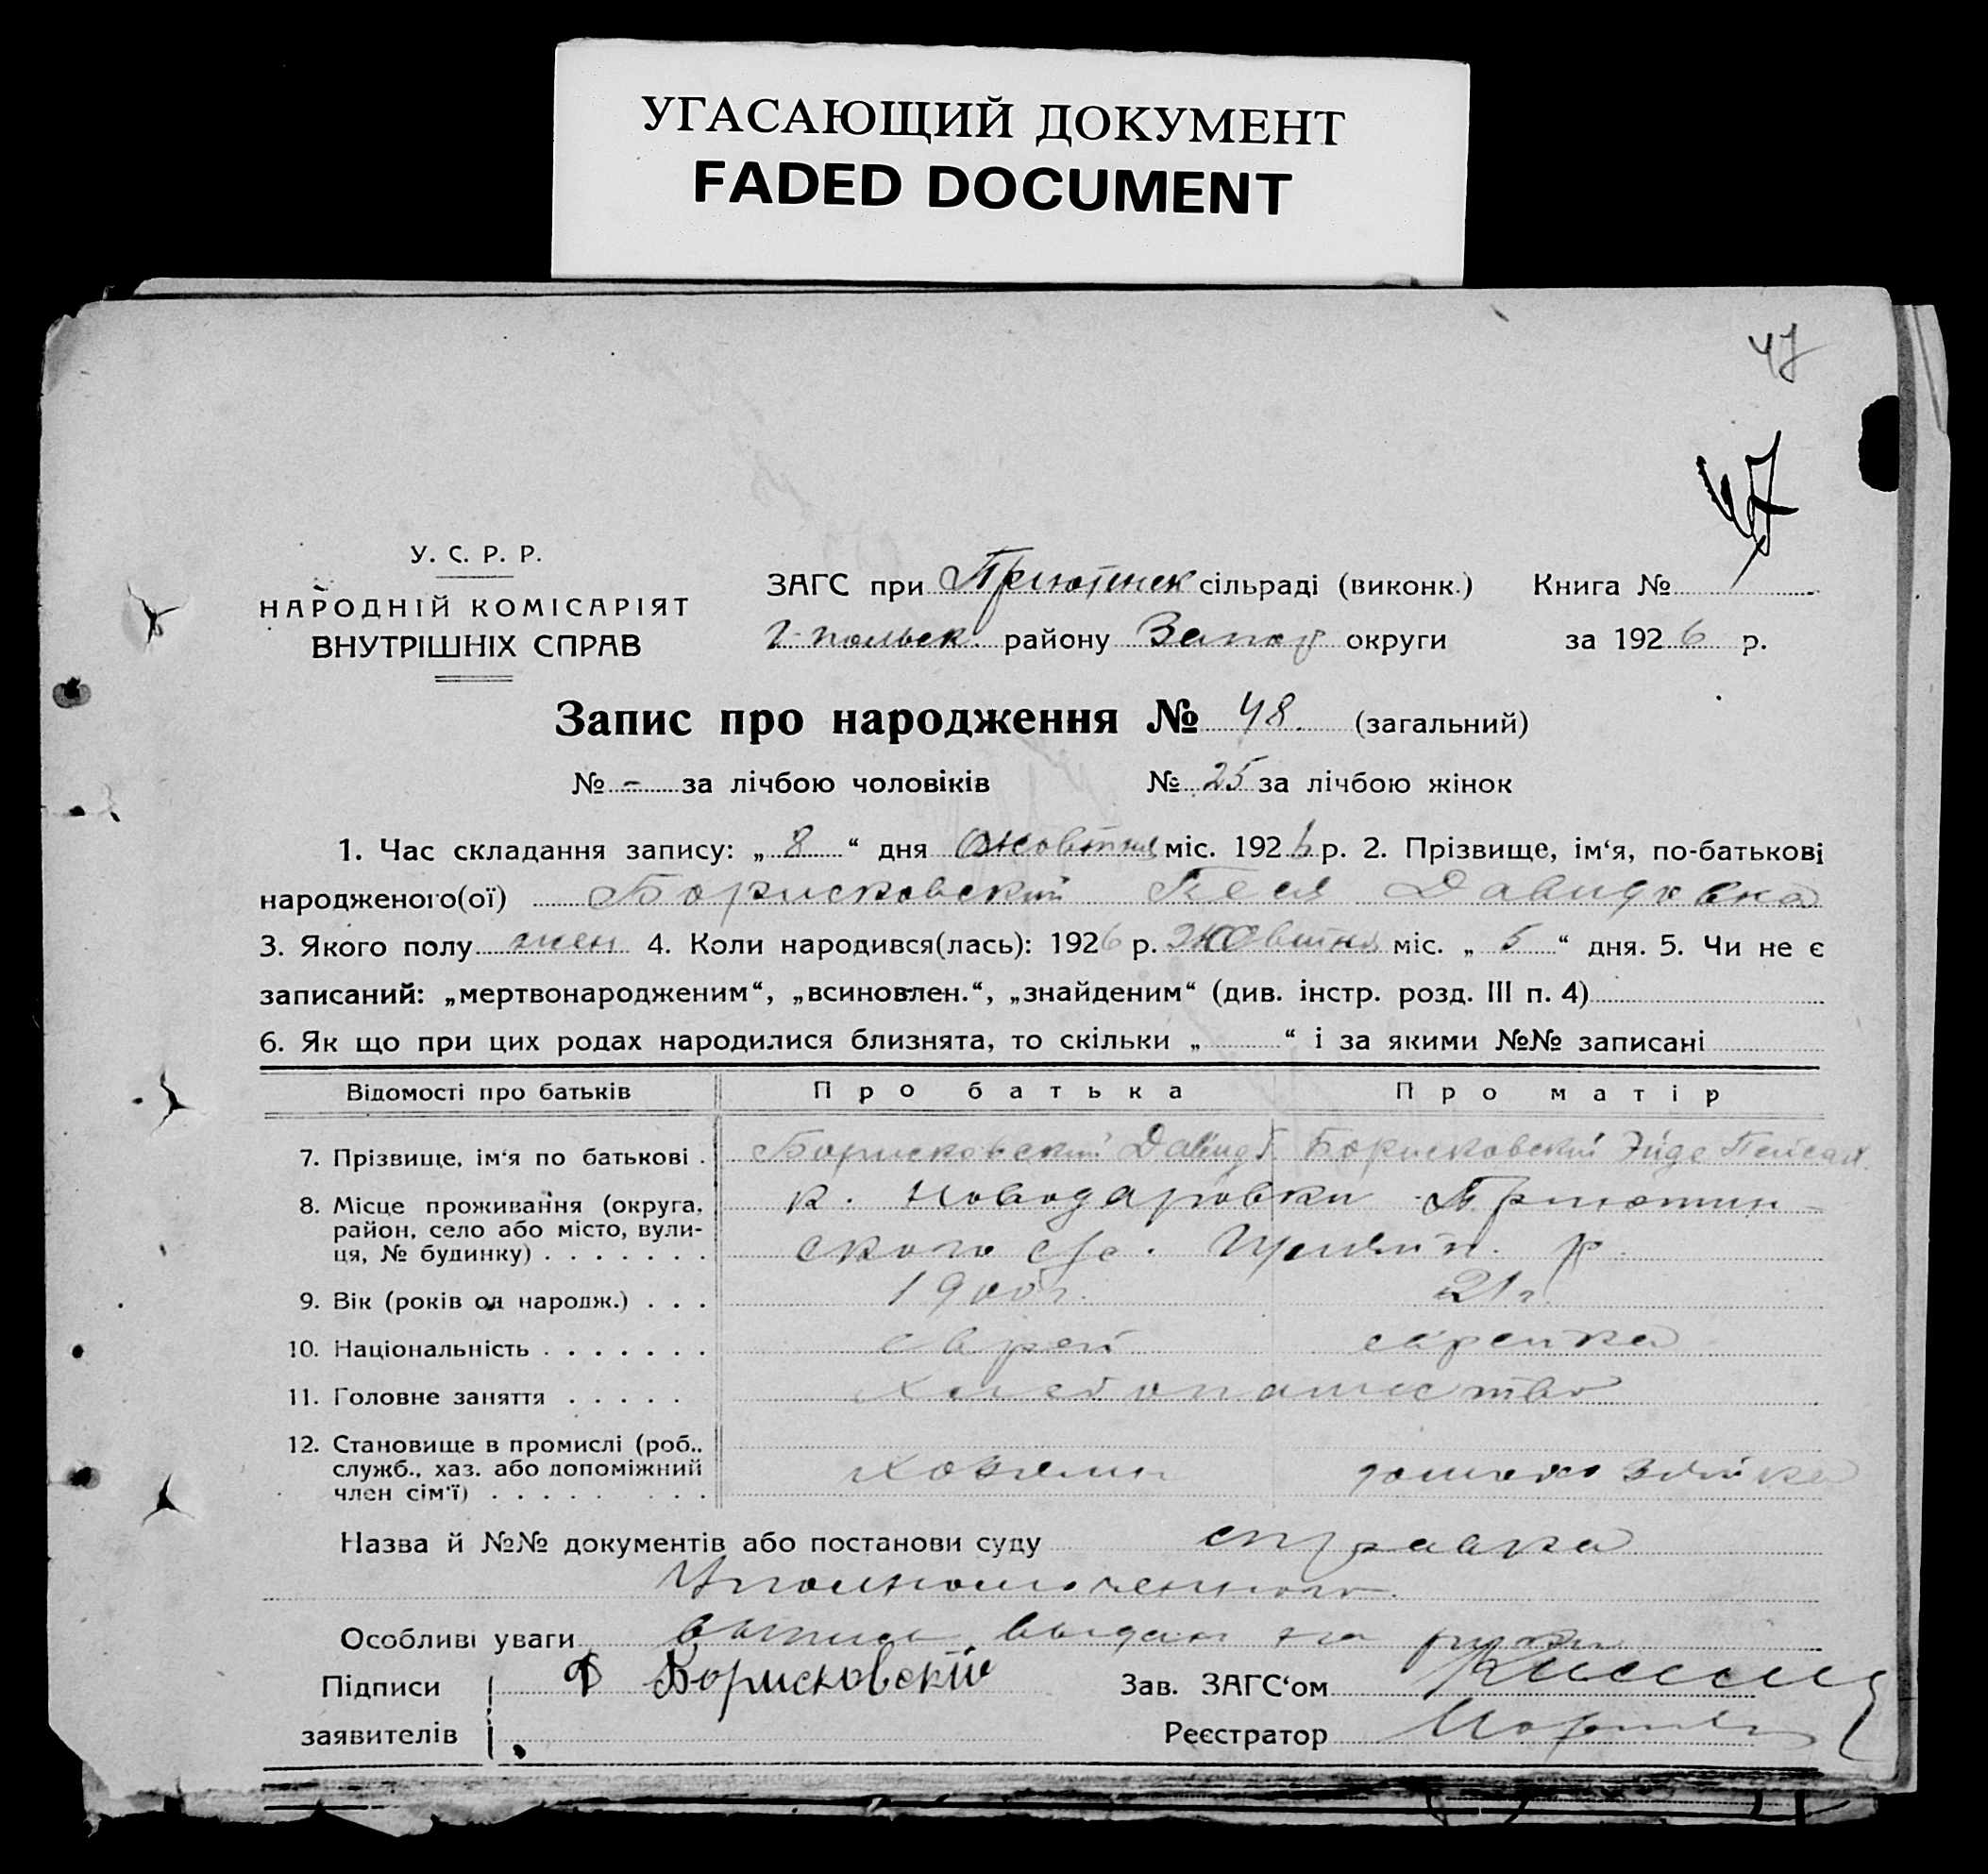 УГАСАЮЩИЙ ДОКУМЕНТ
FADED DOCUMENT
47
47
У. С. Р. Р.
НАРОДНІЙ КОМІСАРІЯТ
ВНУТРІШНІХ СПРАВ
ЗАГС при Приютинск сільраді (виконк.) Книга №
Г-польск. району Запор округи за 1926 р.
Запис про народження № 48. (загальний)
№ - за лічбою чоловіків № 25 за лічбою жінок
1. Час складання запису: „ 8 “ дня жовтня міс. 1926 р. 2. Прізвище, ім‘я, по-батькові
народженого(ої) Борисковский Песя Давидовна
3. Якого полу жен 4. Коли народився(лась): 1926 р. жовтня міс. „ 5 “ дня. 5. Чи не є
записаний: „мертвонародженим“, „всиновлен.“, „знайденим“ (див. інстр. розд. III п. 4)
6. Як що при цих родах народилися близнята, то скільки „ “ і за якими №№ записані
Відомості про батьків Про батька Про матір
7. Прізвище, ім‘я по батькові . Борисковский Давид Борисковский Эйде Пейсах.
8. Місце проживання (округа, к. Новодаровки Приютин
район, село або місто, вули-
ця, № будинку) . . . . . . . ского с/с. р.
9. Вік (років од народж.) . . . 1900 г. 21 г.
10. Національність . . . . . . . еврей еврейка
11. Головне заняття . . . . . Хлебопашество
12. Становище в промислі (роб.,
служб., хаз. або допоміжний Хозяин домахозяйка
член сім‘ї) . . . . . . . .
Назва й №№ документів або постанови суду справка
Уполномоченного.
Особливі уваги выпись выдан на руки
Підписи Д Борисковскій Зав. ЗАГС‘ом
заявителів Реєстратор